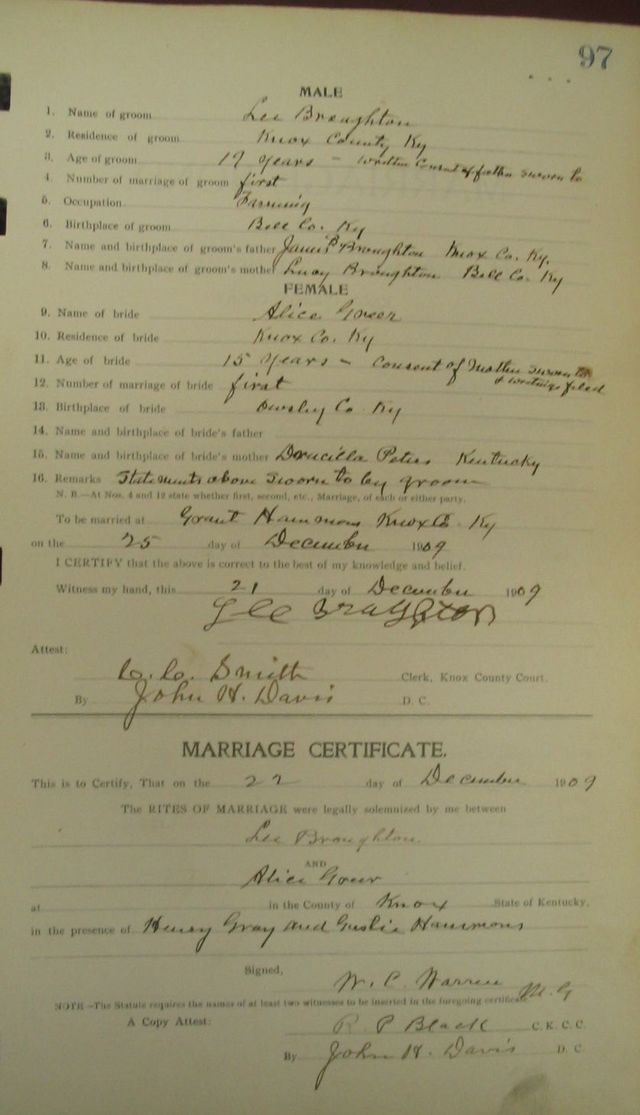 97
MALE
1. Name of groom Lee Broughton
2. Residence of groom Knox County Ky
3. Age of groom 19 years - written consent of father sworn to
4. Number of marriage of groom first
5. Occupation Farming
6. Birthplace of groom Bell Co. Ky
7. Name and birthplace of groom's father James Broughton Knox Co. Ky.
8. Name and birthplace of groom's mother Lucy Broughton Bell Co. Ky
FEMALE
9. Name of bride Alice Greer
10. Residence of bride Knox Co. Ky
11. Age of bride 15 years - consent of Mother sworn to
& writing filed
12. Number of marriage of bride first
13. Birthplace of bride Owsley Co. Ky
14. Name and birthplace of bride's father
15. Name and birthplace of bride's mother Drucilla Peters Kentucky
16. Remarks Statements above sworn to by groom
N. B.—At Nos. 4 and 12 state whether first, second, etc., Marriage, of each or either party.
To be married at Grant Hammons Knox Co. Ky
on the 25 day of December 1909
I CERTIFY that the above is correct to the best of my knowledge and belief.
Witness my hand, this 21 day of December 1909
Lee Broughton
Attest:
C. C. Smith Clerk, Knox County Court.
By John H. Davis D. C.
MARRIAGE CERTIFICATE.
This is to Certify, That on the 22 day of December 1909
The RITES OF MARRIAGE were legally solemnized by me between
Lee Broughton
AND
Alice Greer
at in the County of Knox State of Kentucky,
in the presence of Henry Gray and Hammons
Signed, W. C. Warren M. G
NOTE—The Statute requires the names of at least two witnesses to be inserted in the foregoing certificate.
A Copy Attest: R P Black C. K. C. C.
By John H. Davis D. C.